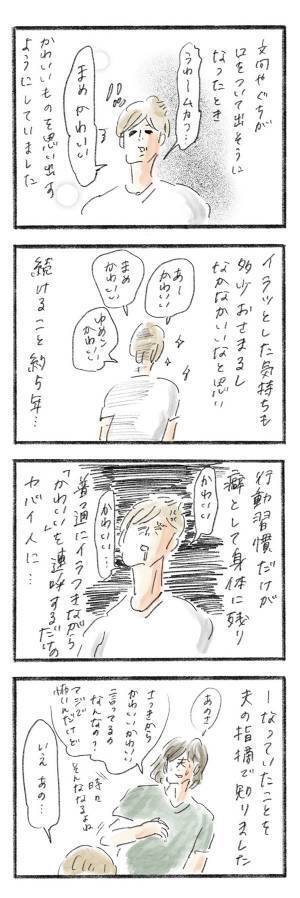 文句やぐちが
口をついて出そうに
なったとき
うわームカつ…
まめかわいい
かわいいものを思い出す
ようにしていました
イラッとした気持ちも
多少おさまるし
なかなかいいなと思い
あー
かわいい
まめ
かわいい
ゆめこ
かわいい
続けること約5年…
行動習慣だけが
癖として身体に残り
かわいい…
かわいい…
普通にイラつきながら
「かわいい」を連呼するだけの
ヤバイ人に…
ーなっていたことを
夫の指摘で知りました
あのさ
さっきから
かわいいかわいい
言ってるの
なんなの?
マジで
怖いんだけど
時々
そんなになるよね
いえ あの…